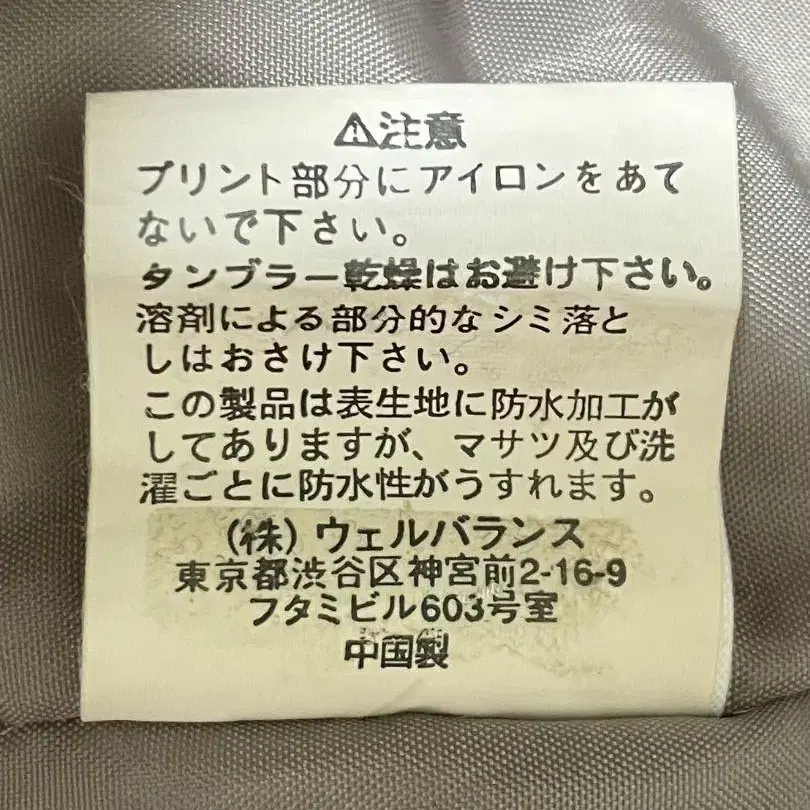 ⚠注意
プリント部分にアイロンをあて
ないで下さい。
タンブラー乾燥はお避け下さい。
溶剤による部分的なシミ落と
しはおさけ下さい。
この製品は表生地に防水加工が
してありますが、マサツ及び洗
濯ごとに防水性がうすれます。
(株)ウェルバランス
東京都渋谷区神宮前2-16-9
フタミビル603号室
中国製